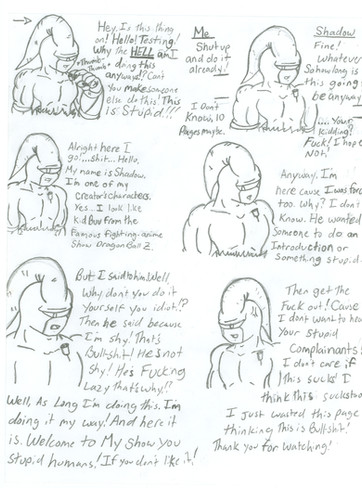 Hey. Is this thing
on! Hello! Testing!
Why the HELL am I
doing this
anyways!? Can't
You make someone
else do this! This
is Stupid!!!
-Thumb-
-Thumb-
Me
Shut up
and do it
already!
I Don't
Know. 10
Pages maybe.
Shadow
Fine!
Whatever
So how long is
this going to
be anyway
....Your
kidding?
Fuck! I hope
Not!
Alright here I
go!...Shit... Hello.
My name is Shadow.
I'm one of my
Creator's Characters.
Yes.. I look like
Kid Buu from the
Famous fighting-anime
Show Dragon Ball Z.
Anyway. I'm
here cause I was forced
too. Why? I don't
Know. He wanted
Someone to do an
Introduction or
Something stupid.
But I said to him Well
Why don't you do it
Yourself you idiot!?
Then he said because
I'm Shy! That's
Bullshit! He's not
Shy! He's Fucking
Lazy that's why!?
Well, As Long I'm doing this. I'm
doing it my way! And here it
is. Welcome to My Show you
Stupid humans! If you don't like it!
Then get the
Fuck out! Cause
I dont want to hear
Your Stupid
Complainants!
I don't care if
This sucks! I
think this sucks too
I just wasted this page
thinking This is Bullshit!
Thank you for Watching!